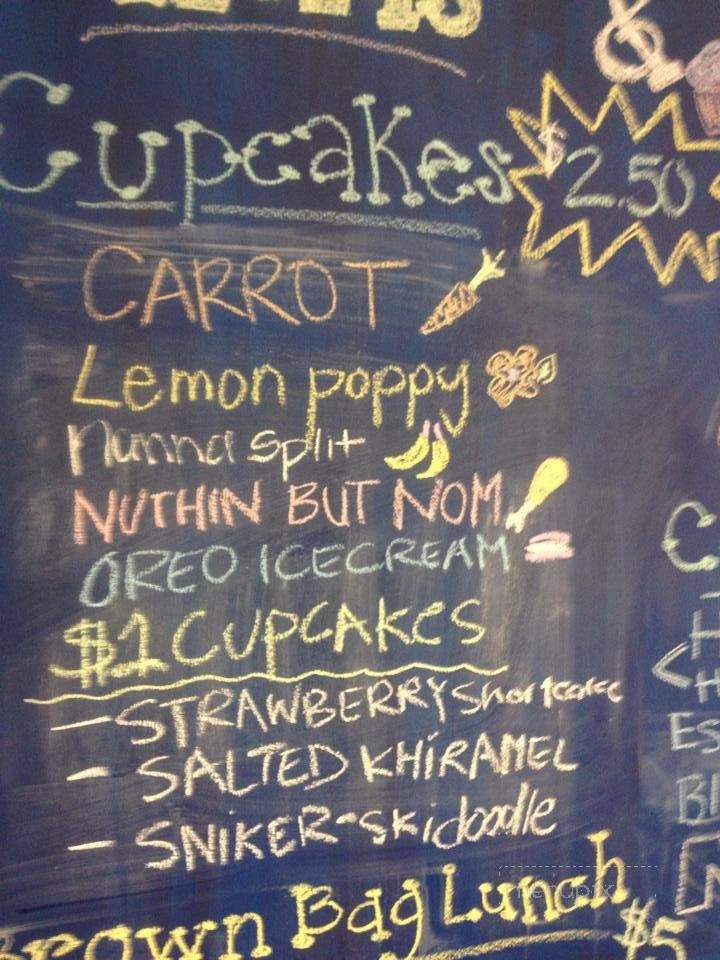 Cupcakes $2.50
CARROT
Lemon poppy
nanna split
NUTHIN BUT NOM
OREO ICECREAM
$1 CUPCAKES
- STRAWBERRY shortcake
- SALTED KHIRAMEL
- SNIKER-SKidoodle
Brown Bag Lunch
$5